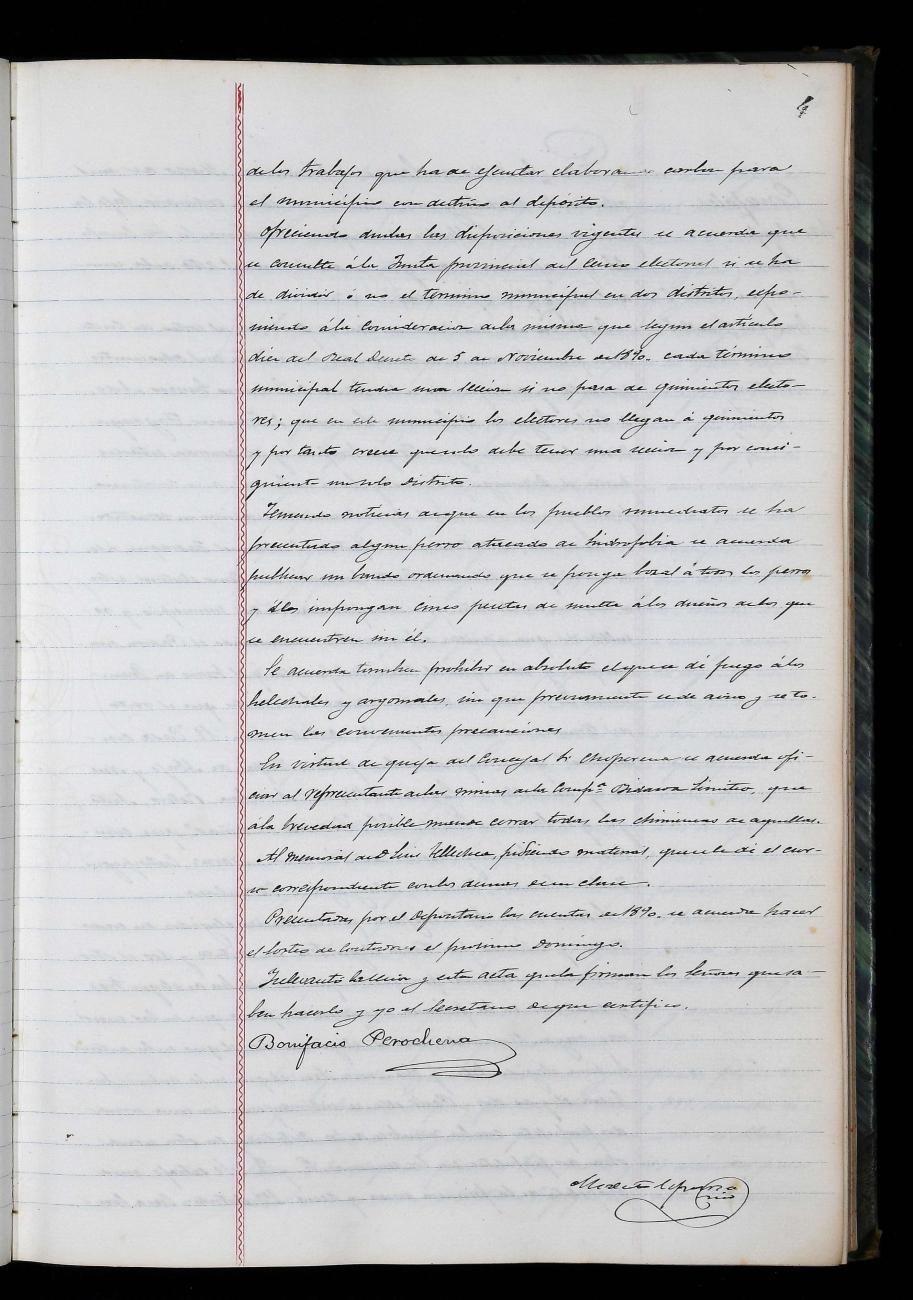 4
de los trabajos que ha de ejecutar elaborando carbon para
el municipio con destino al depósito.
Ofreciendo dudas las disposiciones vigentes se acuerda que
se consulte á la Junta provincial del Censo electoral si se ha
de dividir ó no el término municipal en dos distritos, expo-
niendo á la consideracion de la misma que segun el artículo
diez del Real Decreto de 5 de Noviembre de 1890. cada término
municipal tendra una seccion si no pasa de quinientos electo-
res; que en este municipio los electores no llegan á quinientos
y por tanto creese que solo debe tener una seccion y por consi-
guiente un solo distrito.
Teniendo noticias de que en los pueblos inmediatos se ha
presentado algun perro atacado de hidrofobia se acuerda
publicar un bando ordenando que se ponga bozal á todos los perros
y se les impongan cinco pesetas de multa á los dueños de los que
se encuentren sin él.
Se acuerda tambien prohibir en absoluto el que se dé fuego á los
helechales y argomales, sin que previamente se de aviso y se to-
men las convenientes precauciones
En virtud de queja del Concejal Sr. Choperena se acuerda ofi-
ciar al representante de las minas de la Comp.ª Bidasoa Limited, que
á la brevedad posible mande cerrar todas las chimeneas de aquellas.
Al memorial de D. Luis Tellechea, pidiendo material, que se le dé el cur-
so correspondiente con los demas de su clase.
Presentadas por el Depositario las cuentas de 1890. se acuerda hacer
el sorteo de Contadores el proximo Domingo.
Y se levantó la sesion y esta acta que la firman los Señores que sa-
ben hacerlo y yo el Secretario de que certifico.
Bonifacio Perochena